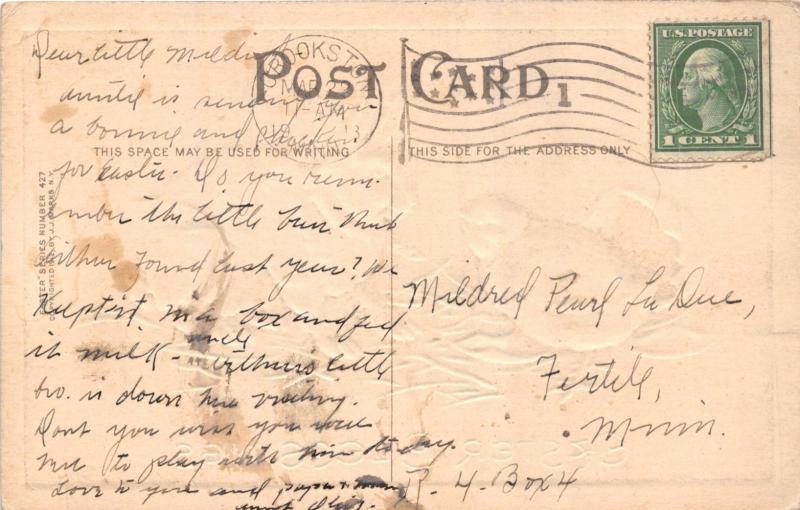 Dear Little Mildred -
auntie is sending you
a bonnie and chicken
for Easter. Do you rem-
ember the little bun that
found last year? We
Kept it in a box and fed
it milk - uncle Arthurs little
bro. is down here visiting.
Dont you wish you were
here to play with him to-day.
Love to you and papa & mama
aunt
POST CARD
THIS SPACE MAY BE USED FOR WRITING
THIS SIDE FOR THE ADDRESS ONLY
CROOKSTON
MAR
11-AM
1
U.S. POSTAGE
1 CENT 1
SERIES NUMBER 427
Mildred Pearl La Due,
Fertile,
Minn.
R. 4 - Box 4